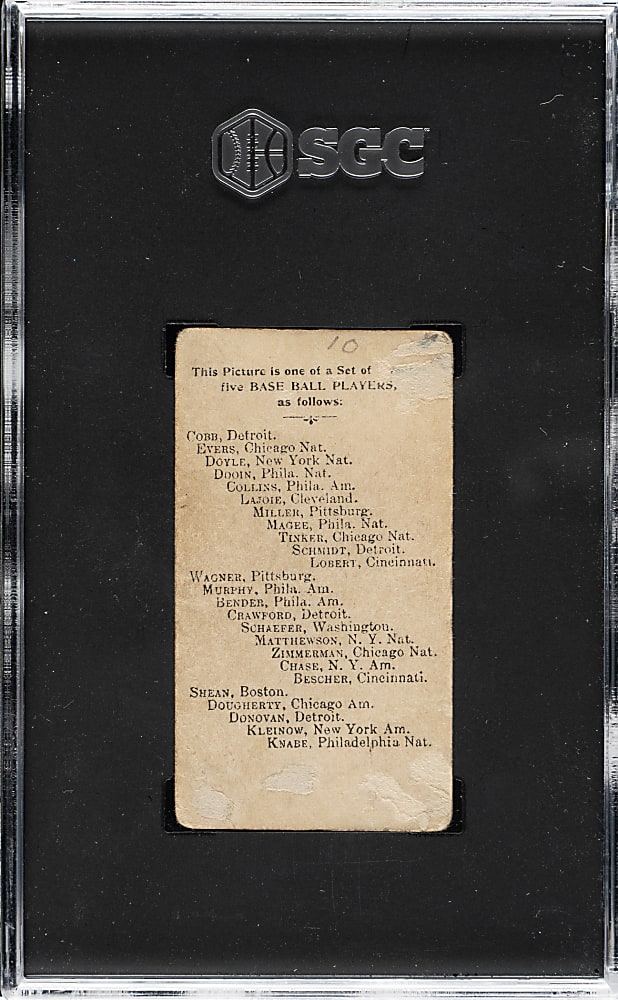 SGC
10
This Picture is one of a Set of
five BASE BALL PLAYERS,
as follows:
COBB, Detroit.
EVERS, Chicago Nat.
DOYLE, New York Nat.
DOOIN, Phila. Nat.
COLLINS, Phila. Am.
LAJOIE, Cleveland.
MILLER, Pittsburg.
MAGEE, Phila. Nat.
TINKER, Chicago Nat.
SCHMIDT, Detroit.
LOBERT, Cincinnati.
WAGNER, Pittsburg.
MURPHY, Phila. Am.
BENDER, Phila. Am.
CRAWFORD, Detroit.
SCHAEFER, Washington.
MATTHEWSON, N. Y. Nat.
ZIMMERMAN, Chicago Nat.
CHASE, N. Y. Am.
BESCHER, Cincinnati.
SHEAN, Boston.
DOUGHERTY, Chicago Am.
DONOVAN, Detroit.
KLEINOW, New York Am.
KNABE, Philadelphia Nat.